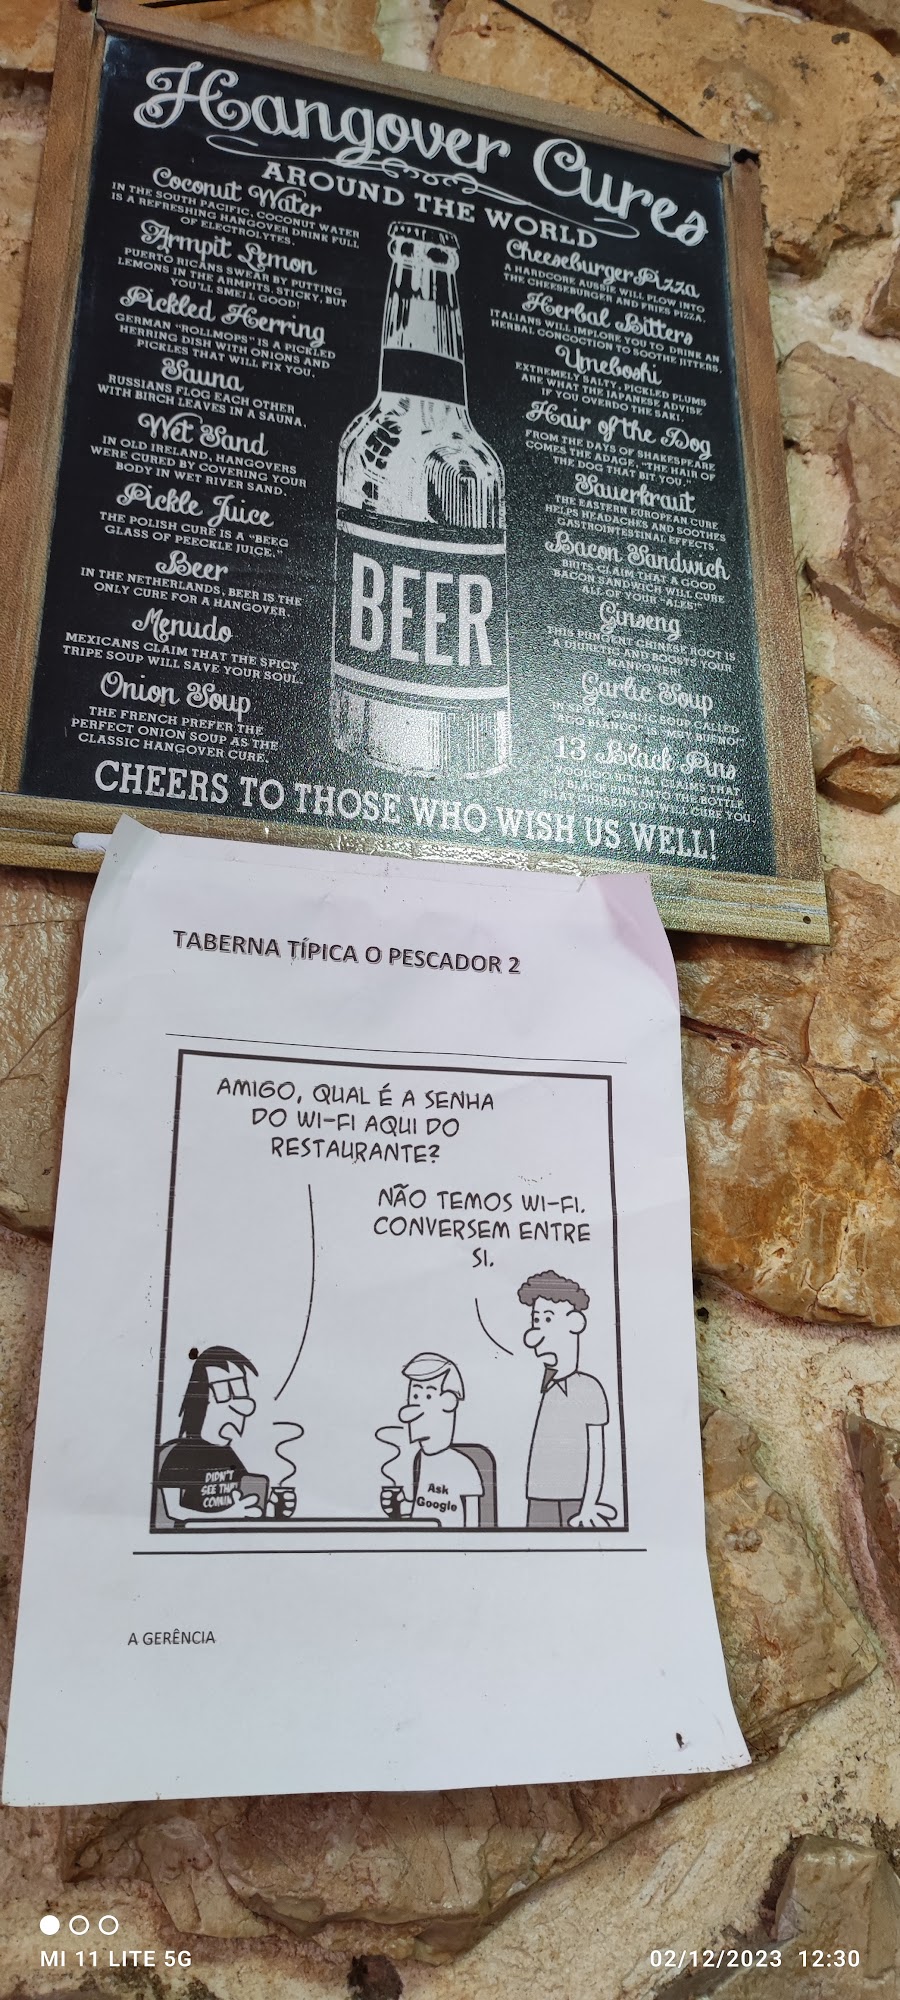 Hangover Cures
AROUND THE WORLD
Coconut Water
IN THE SOUTH PACIFIC, COCONUT WATER
IS A REFRESHING HANGOVER DRINK FULL
OF ELECTROLYTES.
Armpit Lemon
PUERTO RICANS SWEAR BY PUTTING
LEMONS IN THE ARMPITS. STICKY, BUT
YOU'LL SMELL GOOD!
Pickled Herring
GERMAN "ROLLMOPS" IS A PICKLED
HERRING DISH WITH ONIONS AND
PICKLES THAT WILL FIX YOU.
Sauna
RUSSIANS FLOG EACH OTHER
WITH BIRCH LEAVES IN A SAUNA.
Wet Sand
IN OLD IRELAND, HANGOVERS
WERE CURED BY COVERING YOUR
BODY IN WET RIVER SAND.
Pickle Juice
THE POLISH CURE IS A "BEEG
GLASS OF PEECKLE JUICE."
Beer
IN THE NETHERLANDS, BEER IS THE
ONLY CURE FOR A HANGOVER.
Menudo
MEXICANS CLAIM THAT THE SPICY
TRIPE SOUP WILL SAVE YOUR SOUL.
Onion Soup
THE FRENCH PREFER THE
PERFECT ONION SOUP AS THE
CLASSIC HANGOVER CURE.
BEER
Cheeseburger Pizza
A HARDCORE AUSSIE WILL PLOW INTO
THE CHEESEBURGER AND FRIES PIZZA.
Herbal Bitters
ITALIANS WILL IMPLORE YOU TO DRINK AN
HERBAL CONCOCTION TO SOOTHE JITTERS.
Umeboshi
EXTREMELY SALTY, PICKLED PLUMS
ARE WHAT THE JAPANESE ADVISE
IF YOU OVERDO THE SAKI.
Hair of the Dog
FROM THE DAYS OF SHAKESPEARE
COMES THE ADAGE, "THE HAIR OF
THE DOG THAT BIT YOU."
Sauerkraut
THE EASTERN EUROPEAN CURE
HELPS HEADACHES AND SOOTHES
GASTROINTESTINAL EFFECTS.
Bacon Sandwich
BRITS CLAIM THAT A GOOD
BACON SANDWICH WILL CURE
ALL OF YOUR "ALES!"
Ginseng
THIS PUNGENT CHINESE ROOT IS
A DIURETIC AND BOOSTS YOUR
MANPOWER!
Garlic Soup
IN SPAIN, GARLIC SOUP CALLED
"AGO BLANCO" IS "MUY BUENO!"
13 Black Pins
CLAIMS THAT
BLACK PINS INTO THE BOTTLE
THAT CURSED YOU WILL CURE YOU.
CHEERS TO THOSE WHO WISH US WELL!
TABERNA TÍPICA O PESCADOR 2
AMIGO, QUAL É A SENHA
DO WI-FI AQUI DO
RESTAURANTE?
NÃO TEMOS WI-FI.
CONVERSEM ENTRE
SI.
DIDN'T
SEE THAT
COMING
Ask
Google
A GERÊNCIA
MI 11 LITE 5G
02/12/2023 12:30